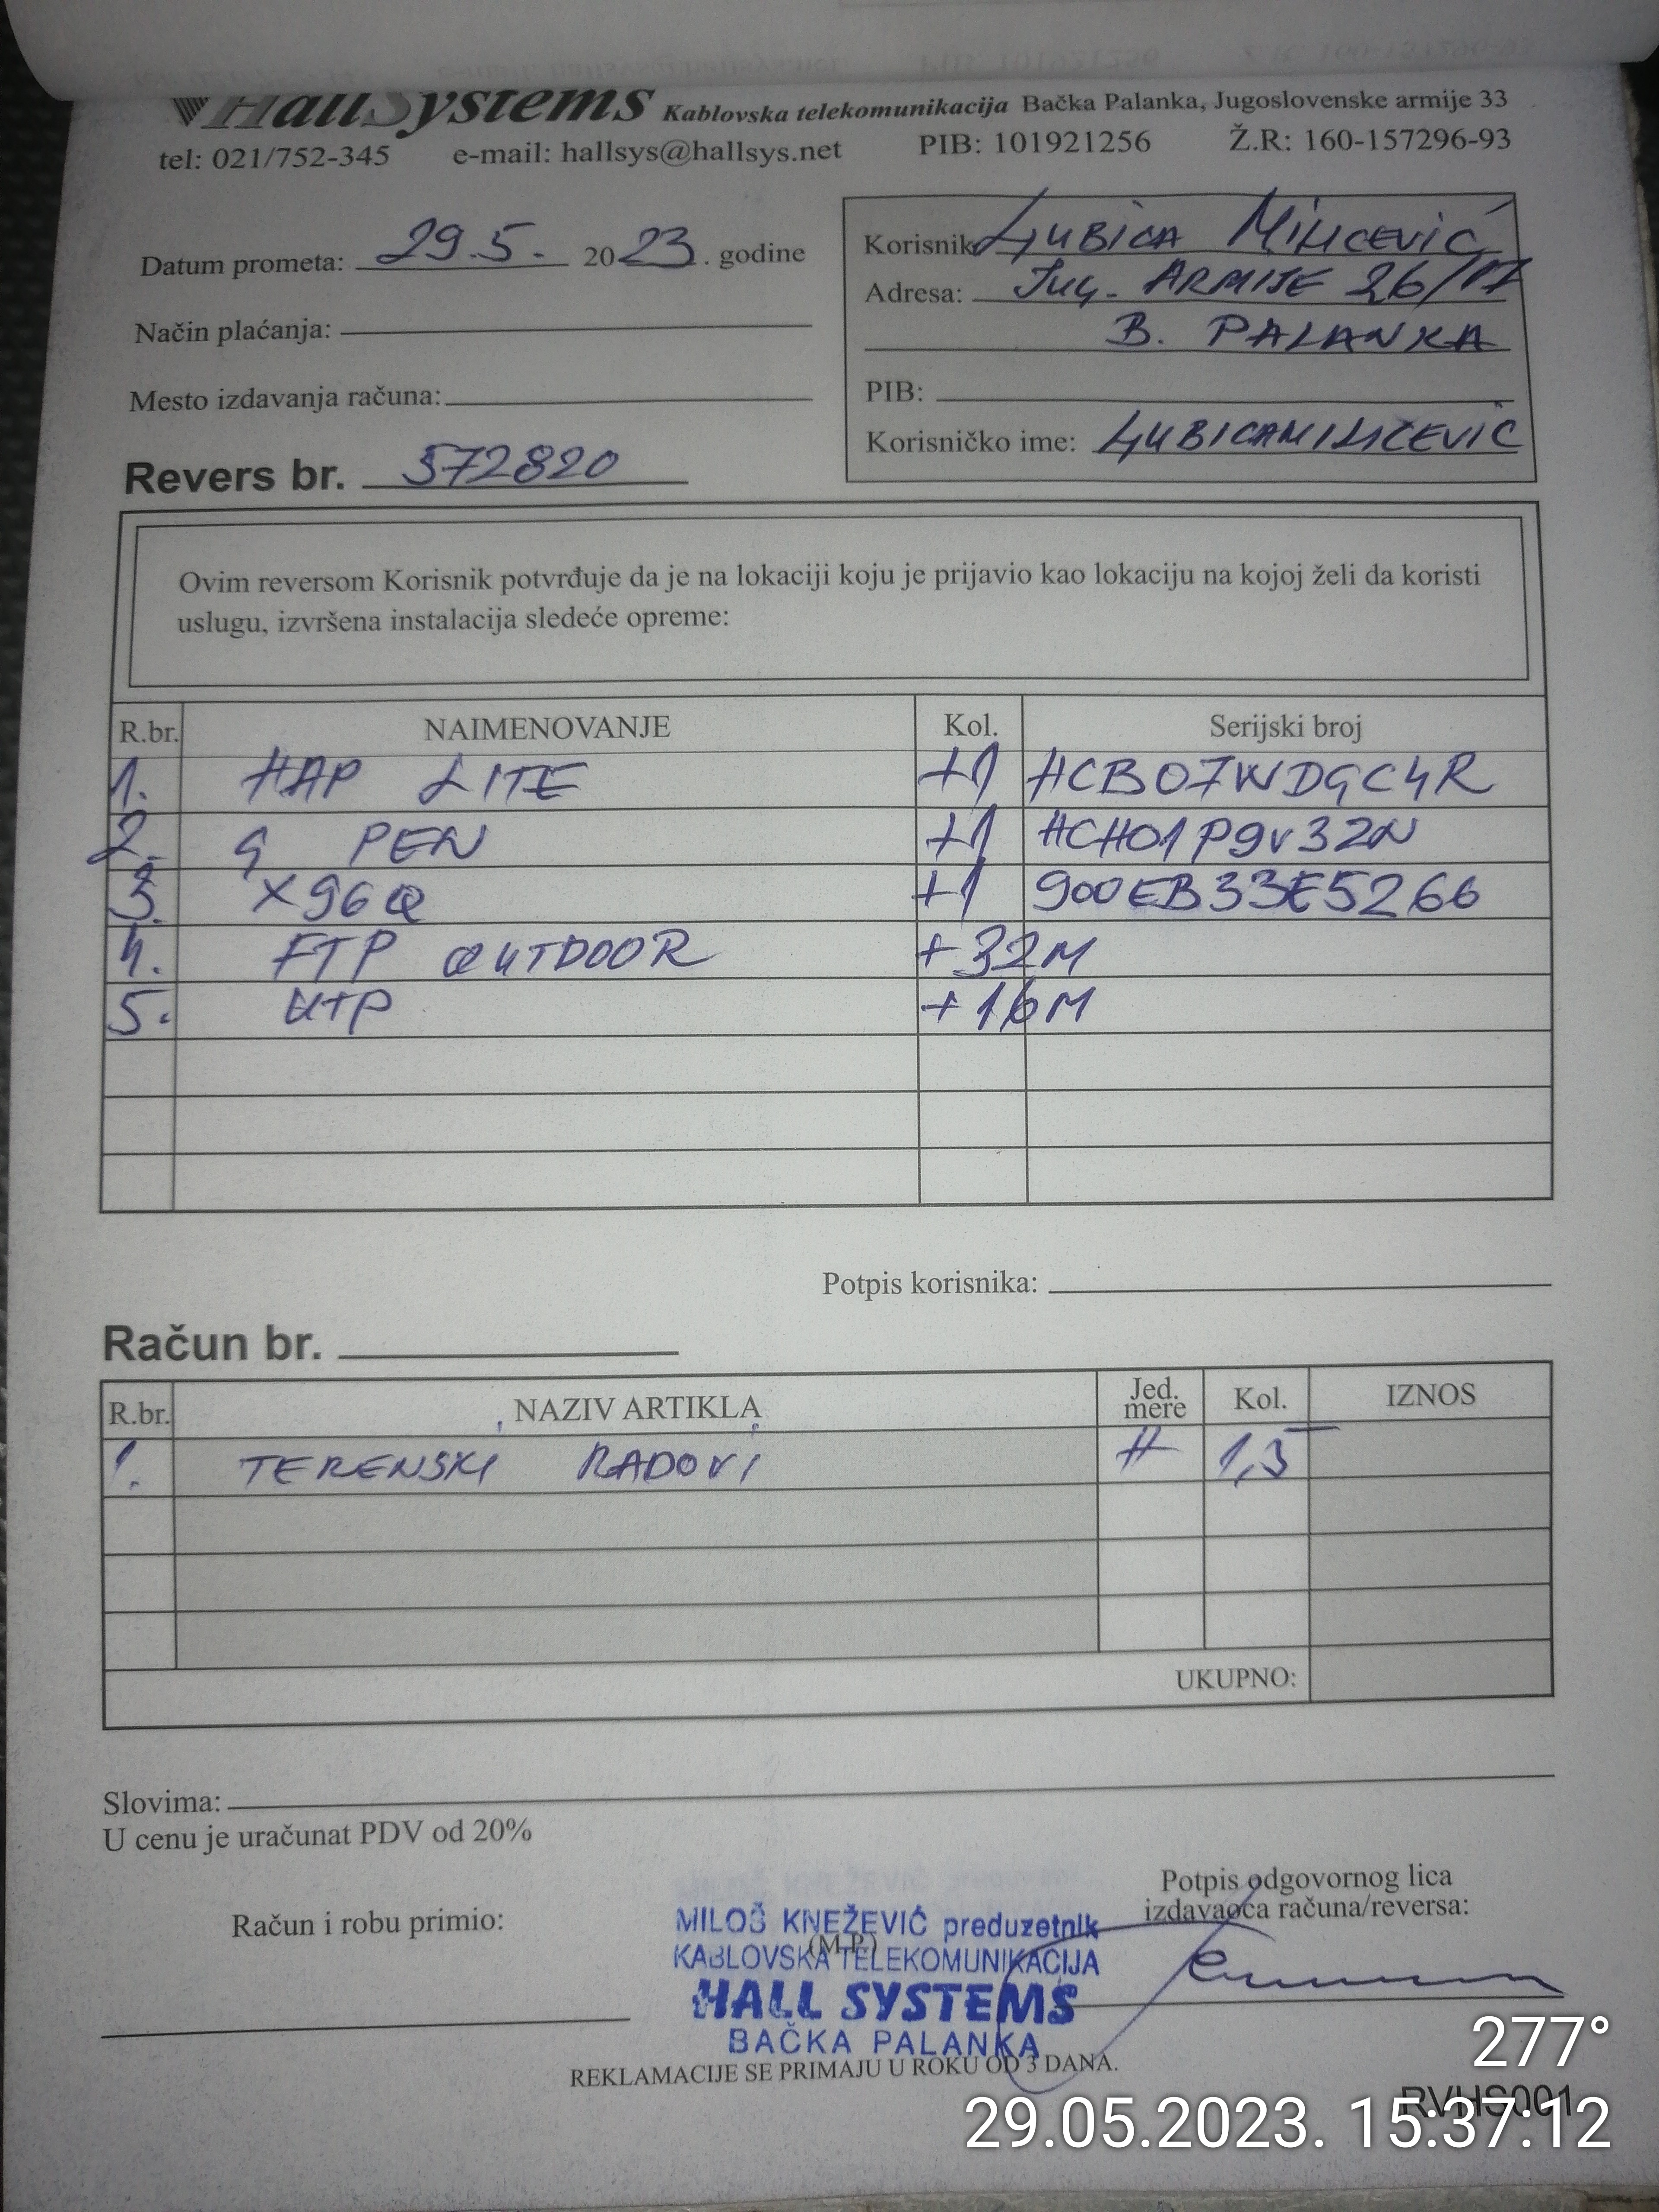 HallSystems Kablovska telekomunikacija Bačka Palanka, Jugoslovenske armije 33
tel: 021/752-345 e-mail: hallsys@hallsys.net PIB: 101921256 Ž.R: 160-157296-93
Datum prometa: 29.5. 2023. godine
Način plaćanja:
Mesto izdavanja računa:
Revers br. 572820
Korisnik LJUBICA MILICEVIĆ
Adresa: JUG. ARMIJE 26/17
B. PALANKA
PIB:
Korisničko ime: LJUBICAMILICEVIC
Ovim reversom Korisnik potvrđuje da je na lokaciji koju je prijavio kao lokaciju na kojoj želi da koristi
uslugu, izvršena instalacija sledeće opreme:
R.br. NAIMENOVANJE Kol. Serijski broj
1. HAP LITE +1 HCB07WDGC4R
2. G PEN +1 HCH01P9V32N
3. X96Q +1 900EB33E5266
4. FTP OUTDOOR +32M
5. UTP +16M
Potpis korisnika:
Račun br.
R.br. NAZIV ARTIKLA Jed. mere Kol. IZNOS
1. TERENSKI RADOVI H 1,5
UKUPNO:
Slovima:
U cenu je uračunat PDV od 20%
Račun i robu primio:
Potpis odgovornog lica
izdavaoca računa/reversa:
(M.P.)
MILOŠ KNEŽEVIĆ preduzetnik
KABLOVSKA TELEKOMUNIKACIJA
HALL SYSTEMS
BAČKA PALANKA
REKLAMACIJE SE PRIMAJU U ROKU OD 3 DANA.
RVHS001
277°
29.05.2023. 15:37:12